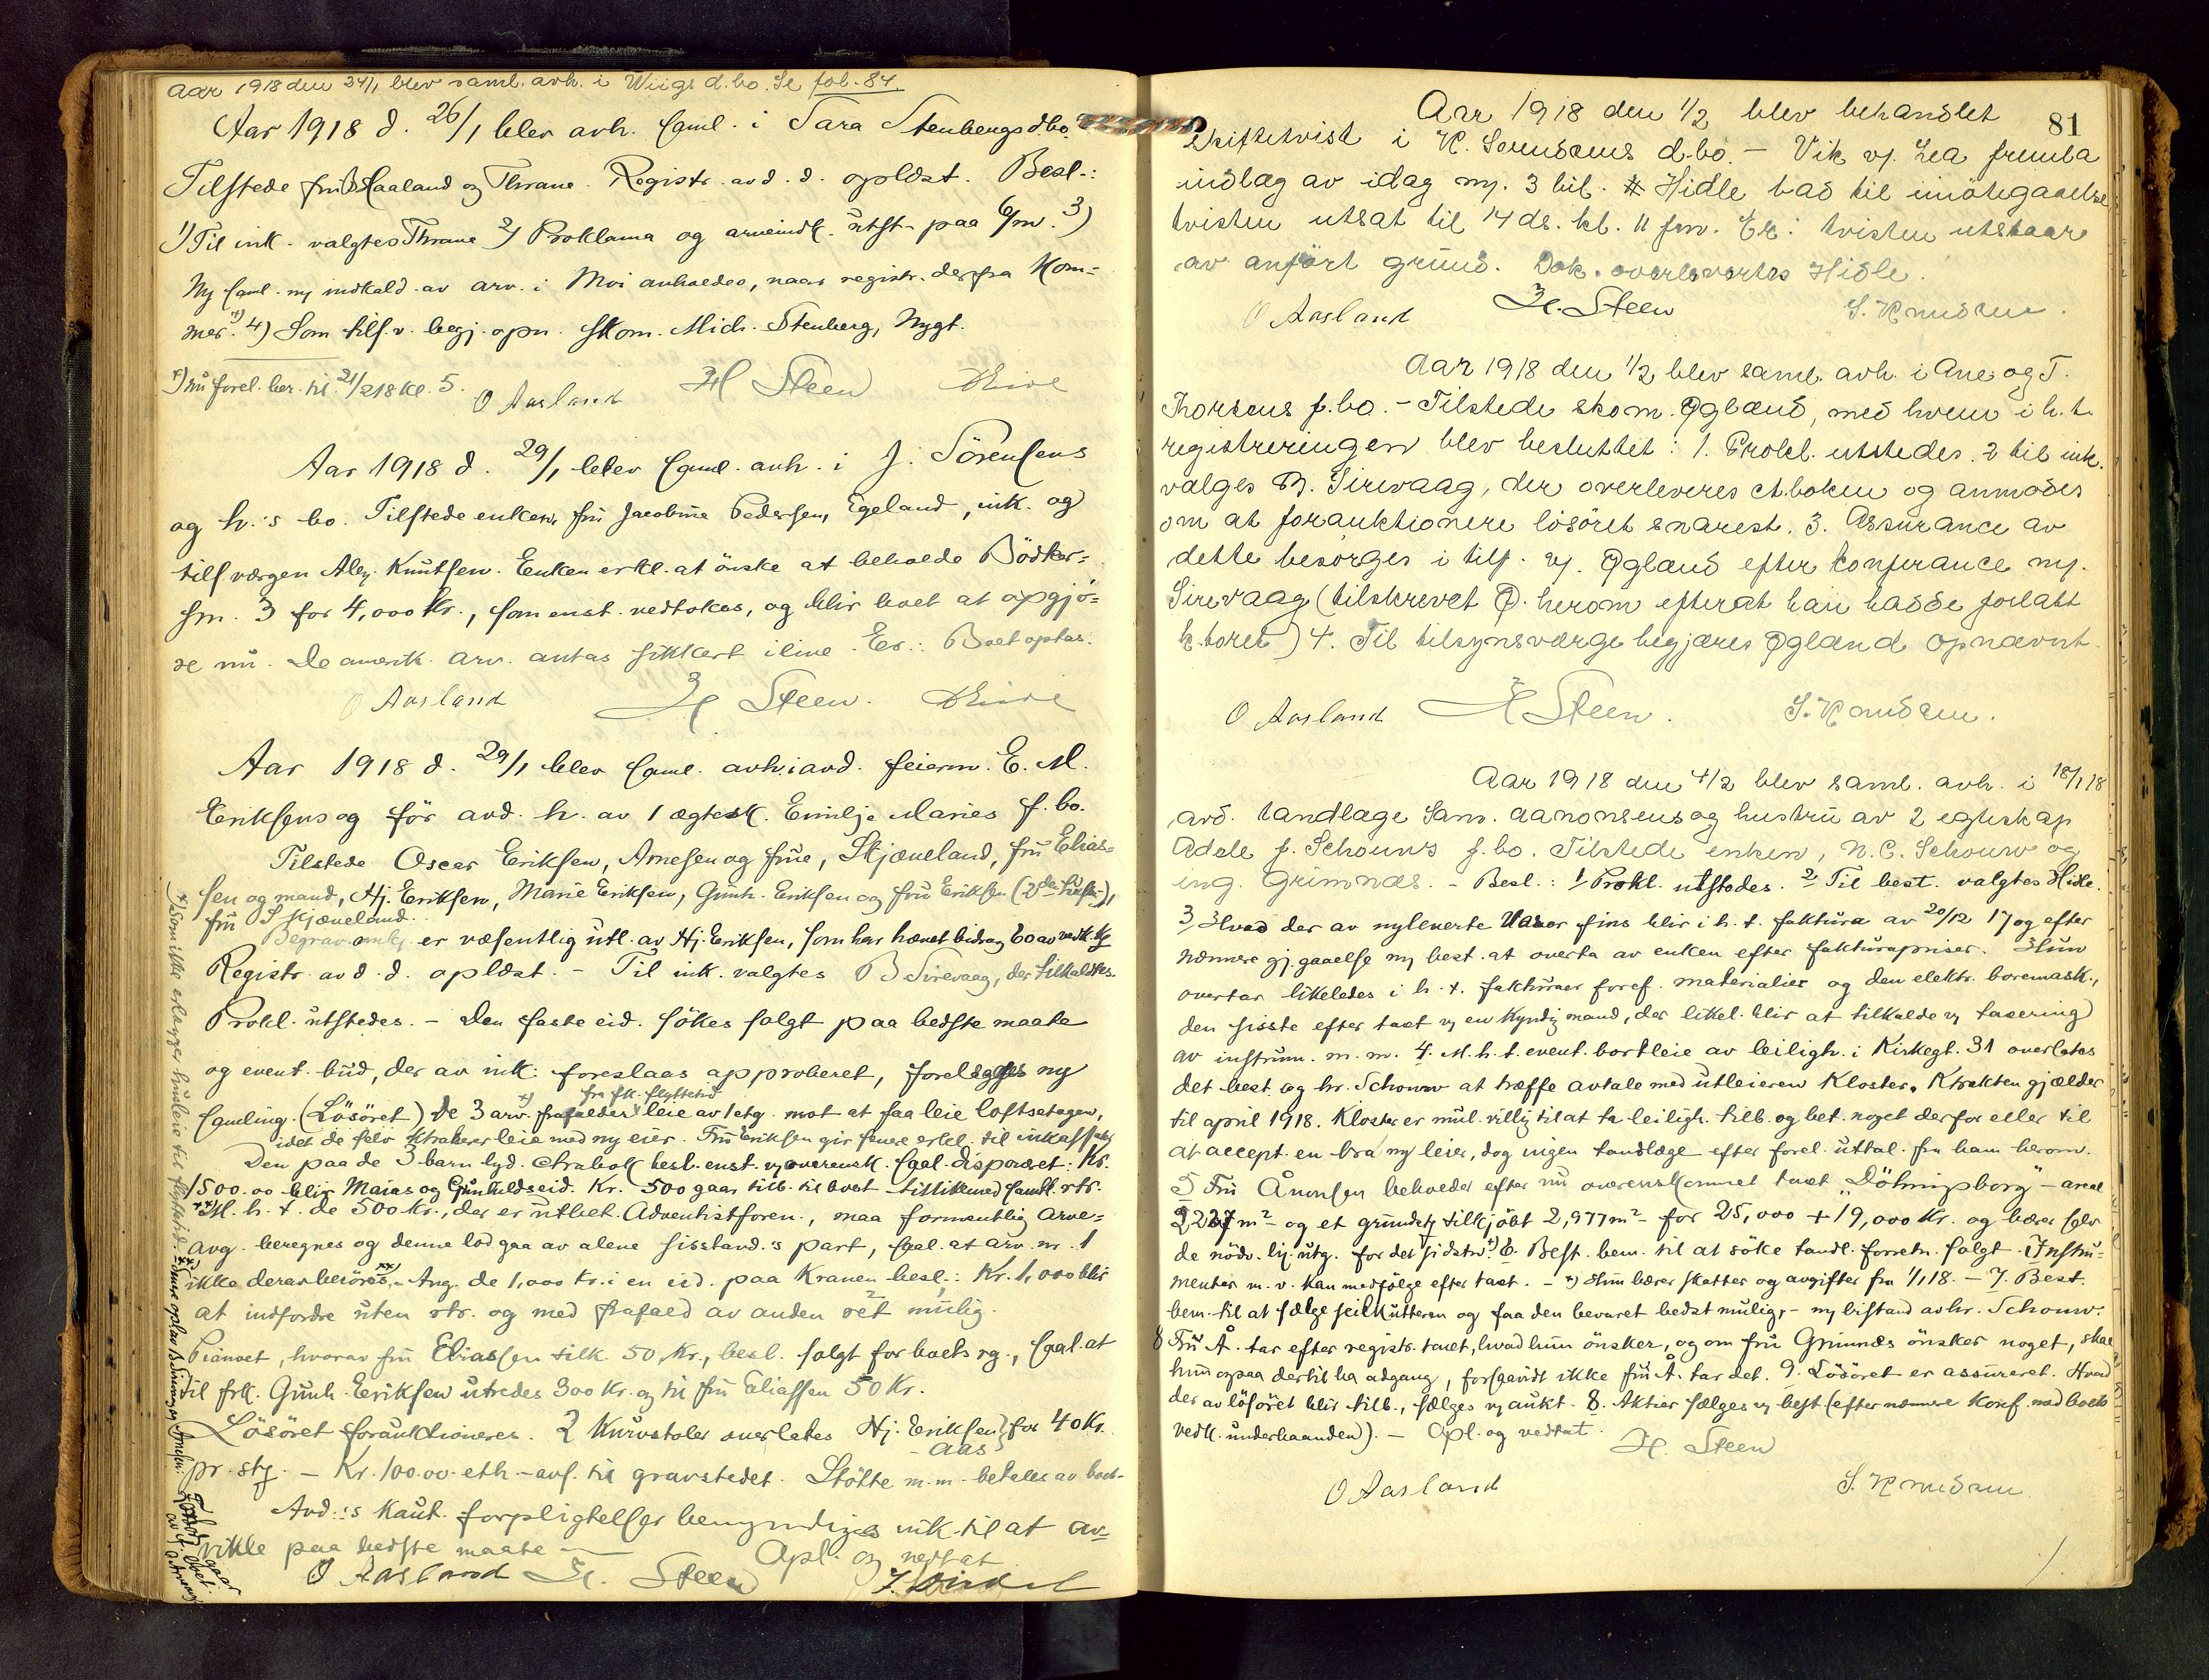 Aar 1918 den 24/1 blev saml. avh. i Wiigs d.bo. Se fol. 84.
Aar 1918 d. 26/1 blev avh. saml. i Tara Stenbergs d.bo.
Tilstede fru Haaland og Thrane. Registr. av d. d. oplæst. Besl.:
1) Til ink. valgtes Thrane 2) Proklama og arveindk. utst. paa 6/m. 3)
Ny saml. indkald. av arv. i Moi anholdes, naar registr. derfra kom=
mer. x) 4) Som tils.v. begj. opn. skom. Mich. Stenberg, Nygt.
x) nu forel. ber. til 21/2 18 kl. 5.
O Aasland H Steen
Aar 1918 d. 29/1 blev saml. avh. i J. Sörensens
og h.'s bo. Tilstede enken, fru Jacobine Pedersen, Egeland, ink. og
tils.værgen Alex. Knutsen. Enken erkl. at önske at beholde Bödker=
sm. 3 for 4,000 Kr., som enst. vedtokes, og blir boet at opgjö=
re nu. De amerik. arv. antas sikkert i live. Er.: Boet optas.
O Aasland H Steen.
Aar 1918 d. 29/1 blev saml. avh. i avd. feierm. E. M.
Eriksens og för avd. h. av 1 ægtesk. Emilje Maries f. bo.
Tilstede Oscar Eriksen, Arnesen og frue, Skjæveland, fru Elias=
sen og mand, Hj. Eriksen, Marie Eriksen, Gunh. Eriksen og fru Eriksen
fru Skjæveland.
er væsentlig utl. av Hj. Eriksen, som har hævet bidrag 60 av
Registr. av d. d. oplæst. – Til ink. valgtes B Sirevaag, der tilkaldtes.
Prokl. utstedes. – Den faste eid. sökes solgt paa bedste maate
og event. bud, der av ink. foreslaas approberet, forelægges ny
samling. (Lösöret) De 3 arv. x) frafalder fra sk. flyttetid leie av 1 etg. mot at faa leie loftsetagen,
idet de selv leie med ny eier. Fru Eriksen gir senere erkl. til
Den paa de 3 barn lyd. besl. enst. overensk. saal. disponeret: Kr.
1500.00 blir Maias og Gunhilds eid. Kr. 500 gaar tilb. til boet
M. h. t. de 500 Kr., der er utbet. Adventistforen., maa formentlig arve=
avg. beregnes og denne lod gaa av alene sisstavd.'s part, saal. at arv. nr. 1
ikke derav beröres. xx) – Ang. de 1,000 Kr. i en eid. paa Kranen besl.: Kr. 1,000 blir
at indfordre uten rtr. og med frafald av anden ret mulig.
Pianoet, hvorav fru Eliassen tilk. 50 Kr., besl. solgt for boets rg., saal. at
til frk. Gunh. Eriksen utredes 300 Kr. og til fru Eliassen 50 Kr.
Lösöret forauktioneres. 2 Kurvstoler overlates Hj. Eriksen for 40 Kr.
pr. stg. – Kr. 100.00 avs. til gravstedet. Stötte m.m. betales av boet.
Avd.'s kaut. forpligtelser bemyndiges ink. til at av=
vikle paa bedste maate
Opl. og vedtat
O Aasland H. Steen
81
Aar 1918 den 1/2 blev behandlet
Skiftetvist i K. Svendsens d.bo. – Vik vf. Lea fremla
indlæg av idag m. 3 bil. Hidle bad til imötegaaelse
tvisten utsat til 14 ds. kl. 11 fm. Er: tvisten utstaar
av anfört grund. Dok. overleveres Hidle.
O Aasland H. Steen S. Knudsen.
Aar 1918 den 1/2 blev saml. avh. i Ane og T.
Thorsens f.bo. – Tilstede skom. Øgland, med hvem i h. t.
registreringen blev besluttet: 1. Prokl. utstedes. 2 til ink.
valges B. Sirevaag, der overleveres ct.boken og anmodes
om at forauktionere lösöret snarest. 3. Assurance av
dette besörges i tilf. vf. Øgland efter konferance m.
Sirevaag (tilskrevet Ø. herom efterat han hadde forlatt
k.toret) 4. Til tilsynsværge begjæres Øgland opnævnt.
O Aasland H Steen. S. Knudsen.
Aar 1918 den 4/2 blev saml. avh. i 18/1 18
avd. tandlæge Sam. Aanonsens og hustru av 2 egteskap
Adele f. Schouws f.bo. Tilstede enken, N. C. Schouw og
ing. Grimnæs. – Besl.: 1/ Prokl. utstedes. 2/ Til best. valgtes Hidle.
3/ Hvad der av nyleverte varer fins blir i h. t. faktura av 20/12 17 og efter
nærmere gj.gaaelse m. best. at overta av enken efter fakturapriser. Hun
overtar likeledes i h. t. fakturaer foref. materialier og den elektr. boremask.,
den sisste efter taxt v. en kyndig mand, der likel. blir at tilkalde v. taxering
av instrum. m. m. 4. M. h. t. event. bortleie av leiligh. i Kirkegt. 31 overlates
det best. og hr. Schouw at træffe avtale med utleieren Kloster. Ktrakten gjælder
til april 1918. Kloster er mul. villig til at ta leiligh. tilb. og bet. noget derfor eller til
at accept. en bra ny leier, dog ingen tandlæge efter forel. uttal. fra ham herom.
5 Fru Ånonsen beholder efter nu overenskommet taxt "Döhnipborg" – areal
2227 m² – og et grundstk tilkjöbt 2,977 m² – for 25,000 + 19,000 Kr. og bærer selv
de nödv. lij. utg. for det sidstn. x) 6. Best. bem. til at söke tandl. forretn. solgt. Instru=
menter m. v. kan medfölge efter taxt. – x) Hun bærer skatter og avgifter fra 1/1 18. – 7. Best.
bem. til at sælge seilkutteren og faa den bevaret bedst mulig, – m. bistand av hr. Schouw.
8 Fru Å. tar efter registr. taxt, hvad hun önsker, og om fru Grimnæs önsker noget, skal
hun ogsaa dertil ha adgang, forsaavidt ikke fru Å. tar det. 9. Lösöret er assureret. Hvad
der av lösöret blir tilb., sælges v. aukt. 8. Aktier sælges v. best. (efter nærmere konf. med boets
vedk. underhaanden). – Opl. og vedtat.
H. Steen
O Aasland S. Knudsen